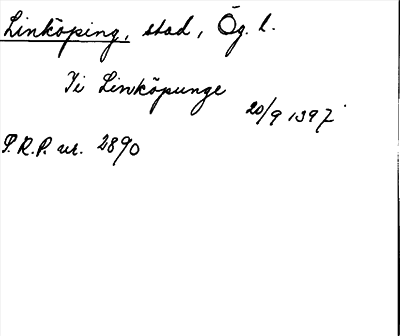 Linköping, stad, Ög. l.
Ii Linköpunge
20/9 1397
P.R.P. nr. 2890